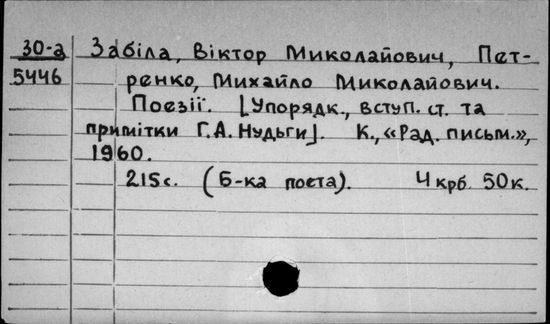 30-а Забіла, Віктор Миколайович, Пет-
5446 ренко, Михайло Миколайович.
Поезії. [Упорядк., вступ. ст. та
примітки Г.А. Нудьги]. К., «Рад. письм.»,
1960.
215с. (Б-ка поета). 4 крб. 50к.